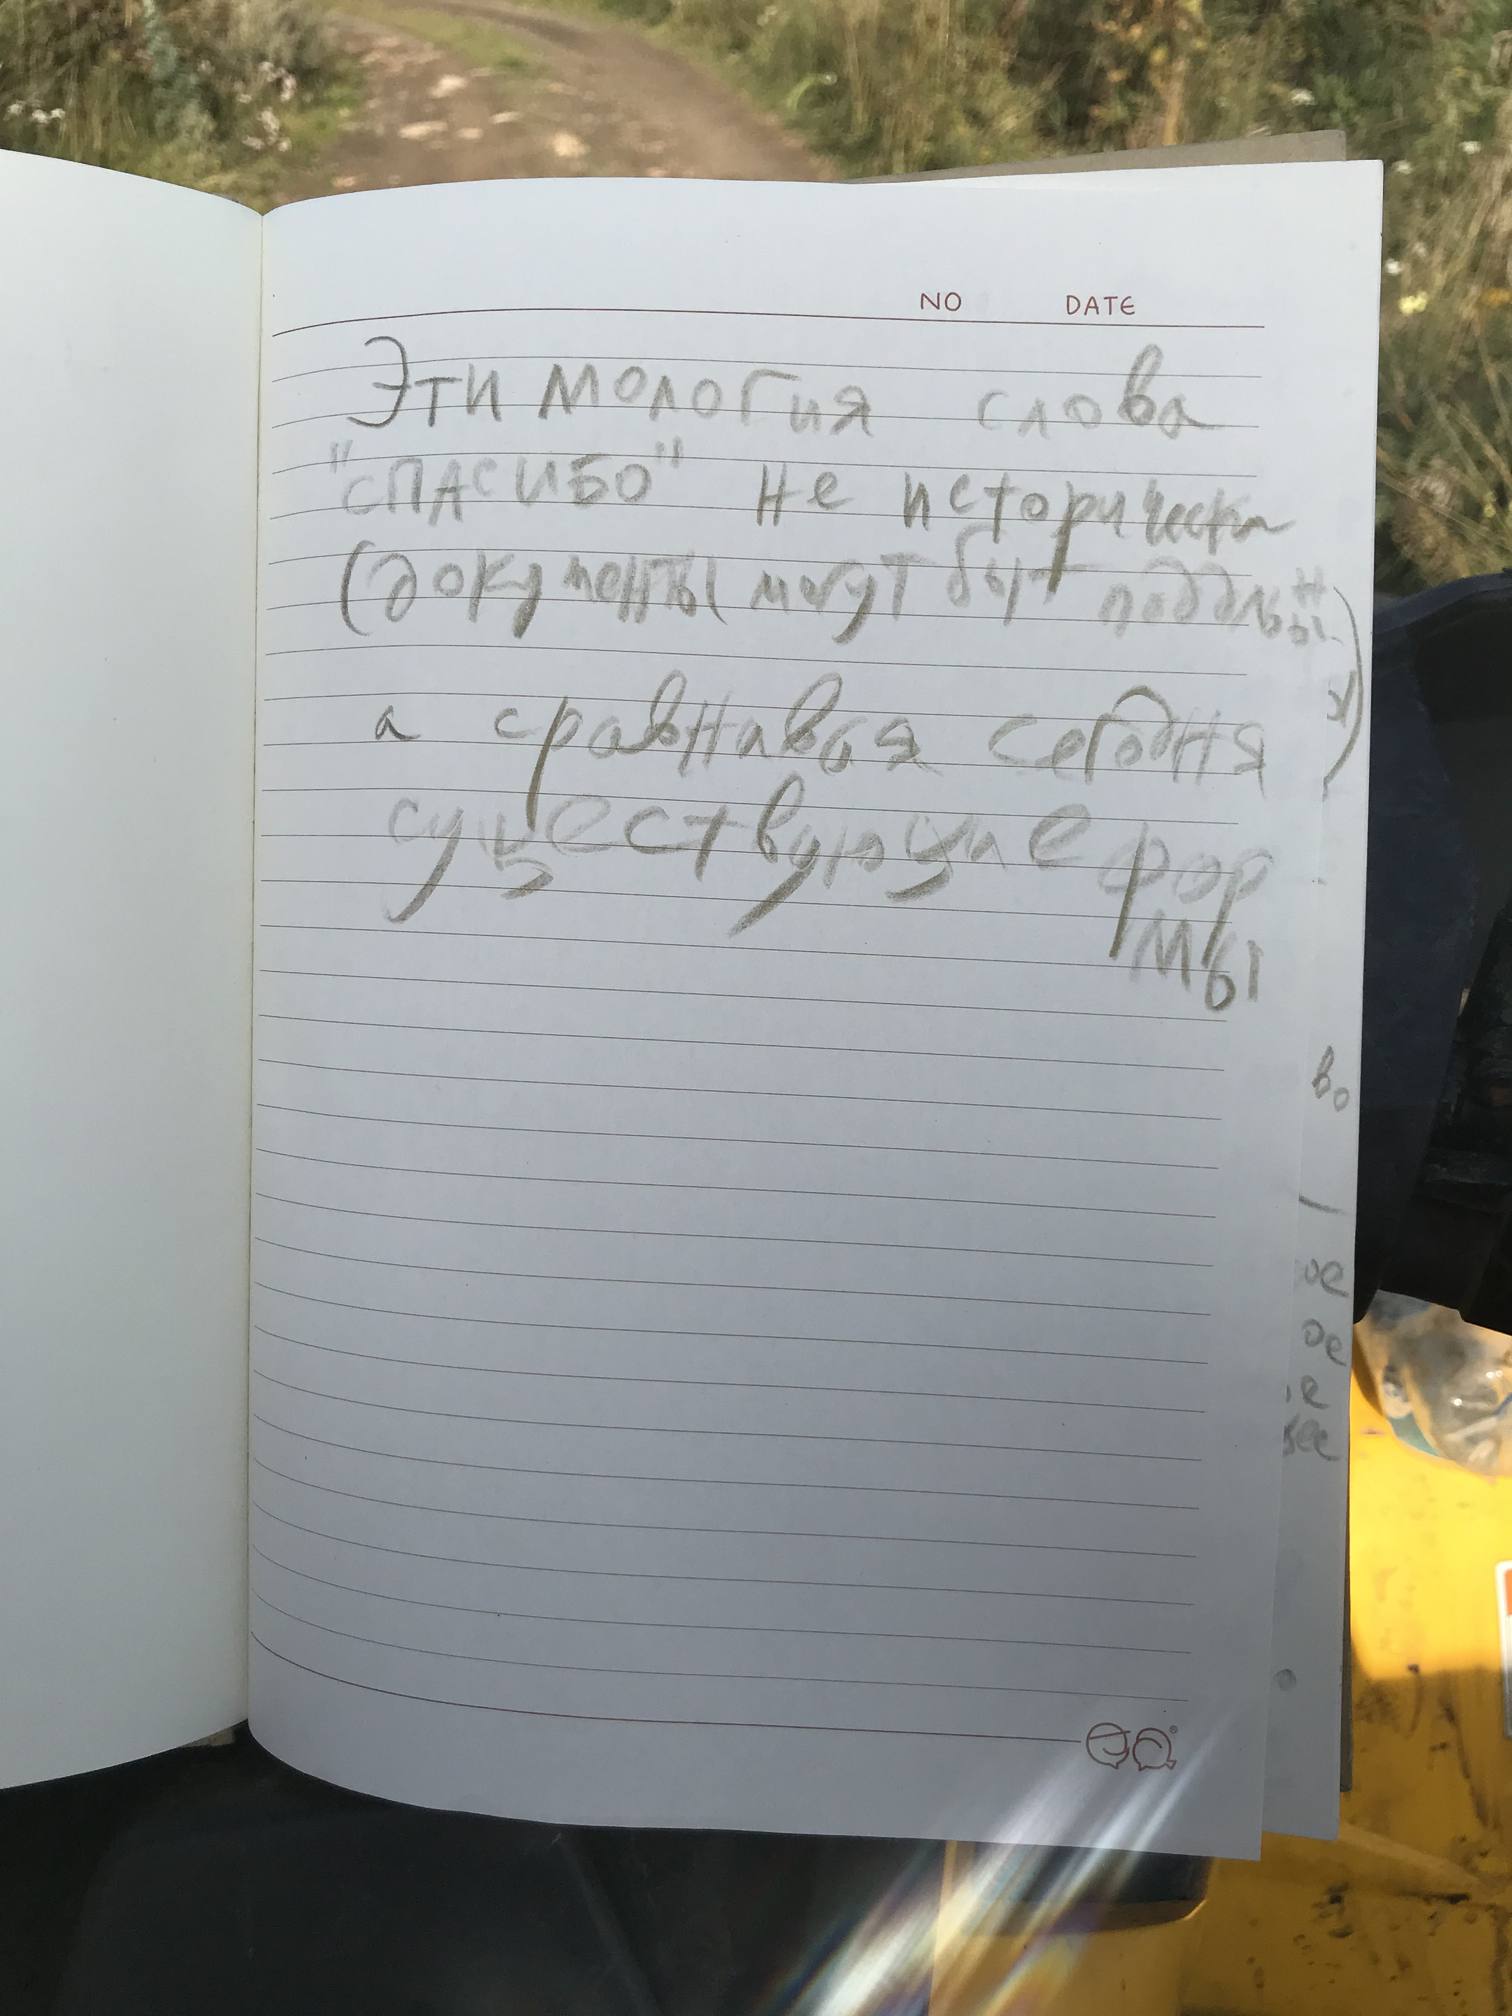 NO DATE
Этимология слова
"СПАСИБО" не исторически
(документы могут быть поддельны)
а сравнавая сегодня
существующие фор
мы
во
ое
ое